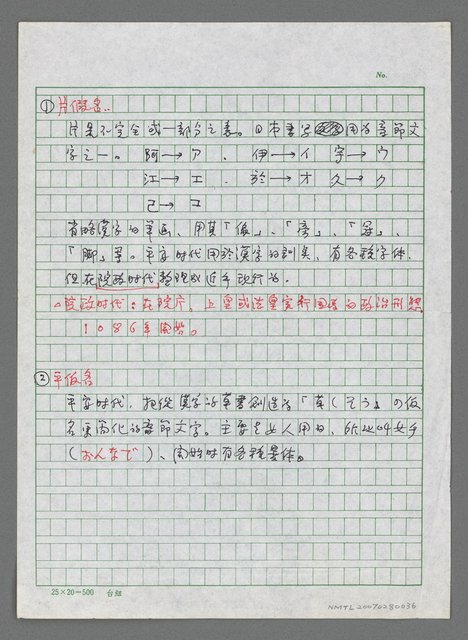 No.
①片假名..
片是不完全或一部分之意。日本書寫用的音節文
字之一。阿→ア. 伊→イ 宇→ウ
江→エ. 於→オ 久→ク
己→コ
省略漢字的筆画、用其「偏」、「旁」、「冠」、
「脚」等。平安时代用於漢字的訓美、有各種字体、
但在院政时代整理成近乎現行的。
。院政时代:在院庁、上皇或法皇实行国事的政治形態
1086年開始。
②平仮名
平安时代、把從漢字的草書創造為「草(そう)」の仮
名更简化的音節文字。主要是女人用的、所以叫女手
(おんなで)、開始时有各種異体。
25×20=500 台紐
NMTL20070280036